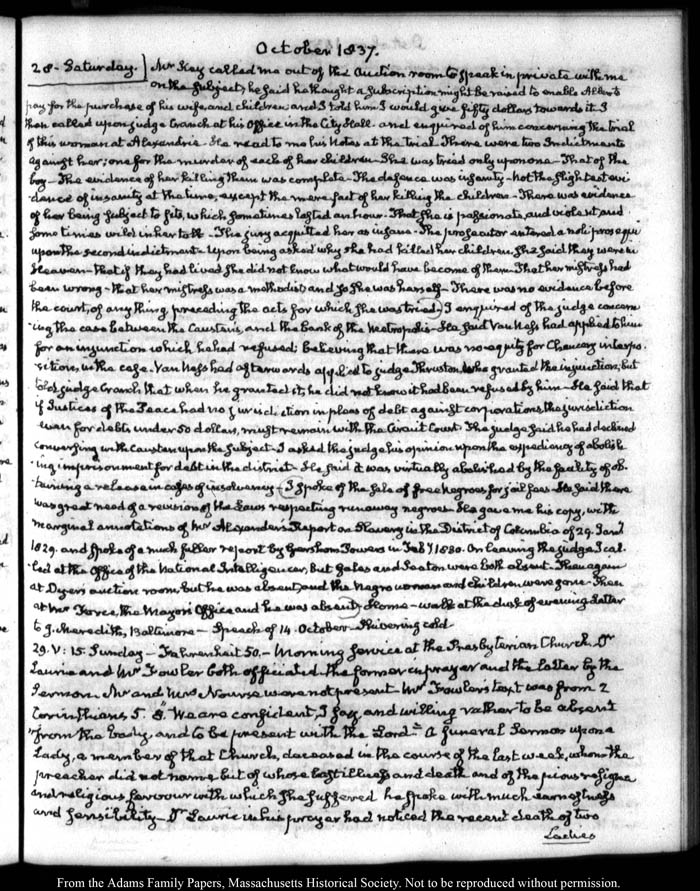 October 1837.
28. Saturday. Mr Key called me out of the Auction room to speak in private with me
on the subject; he said he thought a subscription might be raised to enable Allen to
pay for the purchase of his wife and children and I told him I would give fifty dollars towards it. I
then called upon judge Cranch at his Office in the City Hall and enquired of him concerning the trial
of this woman at Alexandria. He read to me his Notes at the trial. There were two Indictments
against her; one for the murder of each of her children. She was tried only upon one. That of the
boy. The evidence of her killing them was complete. The defence was insanity. Not the slightest evi-
dence of insanity at the time, except the mere fact of her killing the children. There was evidence
of her being subject to fits, which sometimes lasted an hour. That she is passionate, and violent and
sometimes wild in her talk. The jury acquitted her as insane. The prosecutor entered a noli prosequi
upon the second indictment. Upon being asked why she had killed her children, she said they were in
Heaven. that if they had lived she did not know what would have become of them. That her mistress had
been wrong. that her mistress was a methodist and so she was herself. There was no evidence before
the court, of any thing preceding the acts for which she was tried. I enquired of the judge concern-
ing the case between the Caustens, and the Bank of the Metropolis. He said Van Ness had applied to him
for an injunction which he had refused; believing that there was no equity for Chancery interpo-
sition, in the case. Van Ness had afterwards applied to judge Thruston who granted the injunction, but
told judge Cranch that when he granted it, he did not know it had been refused by him. He said that
if Justices of the Peace had no jurisdiction in pleas of debt against corporations, the jurisdiction
even for debts under 50 dollars, must remain with the Circuit Court. The judge said he had declined
conversing with Causten upon the subject. I asked the judge his opinion upon the expediency of abolish-
ing imprisonment for debt in the district. He said it was virtually abolished by the facility of ob-
taining a release in cases of insolvency. I spoke of the sale of free negroes for jail fees. He said there
was great need of a revision of the Laws respecting runaway negroes. He gave me his copy, with
marginal annotations of Mr Alexander's Report on Slavery in the District of Columbia of 29. Jany
1829. and spoke of a much fuller report by Gershom Powers in Feby 1830. On leaving the judge I cal-
led at the Office of the National Intelligencer, but Gales and Seaton were both absent. Then again
at Dyer's auction room, but he was absent, and the Negro woman and children were gone. Then
at Mr Force, the Mayor's Office and he was absent. Home. walk at the dusk of evening. Letter
to J. Meredith, Baltimore. Speech of 14. October. Shivering cold.
29. V: 15. Sunday. Fahrenheit 50. Morning service at the Presbyterian Church. Dr
Laurie and Mr Fowler both officiated the former in prayer and the latter by the
Sermon. Mr and Mrs Nourse were not present. Mr Fowler's text was from 2
Corinthians 5. 8. "We are confident, I say, and willing rather to be absent
"from the body, and to be present with the Lord." A funeral Sermon upon a
Lady, a member of that Church, deceased in the course of the last week, whom the
preacher did not name, but of whose last illness and death and of the pious resigna
and religious fervour with which she suffered he spoke with much earnestness
and sensibility. Dr Laurie in his prayer had noticed the recent death of two
Ladies
From the Adams Family Papers, Massachusetts Historical Society. Not to be reproduced without permission.